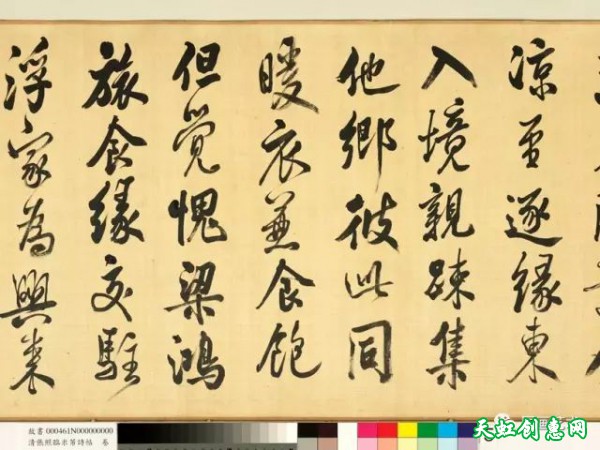 凉至逐緣東
入境親疎集
他鄉彼此同
暖衣兼食飽
但覺愧梁鴻
旅食緣交駐
浮家為興来
故書 000461N000000000
清張照臨米芾詩帖 卷
天虹创惠网